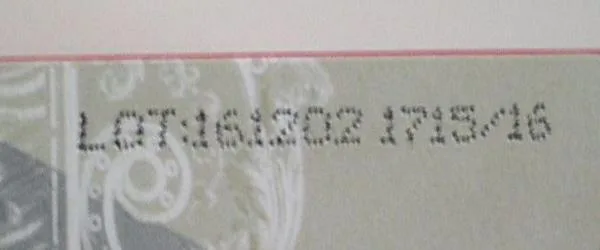 LOT:161202 1715/16